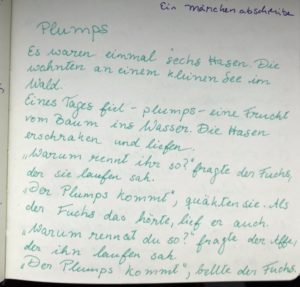 Ein märchen abschreiben
Plumps
Es waren einmal sechs Hasen. Die
wohnten an einem kleinen See im
Wald.
Eines Tages fiel - plumps - eine Frucht
vom Baum ins Wasser. Die Hasen
erschraken und liefen.
„Warum rennt ihr so?" fragte der Fuchs,
der sie laufen sah.
„Der Plumps kommt", quäkten sie. Als
der Fuchs das hörte, lief er auch.
„Warum rennest du so?" fragte der Affe,
der ihn laufen sah.
„Der Plumps kommt", bellte der Fuchs.